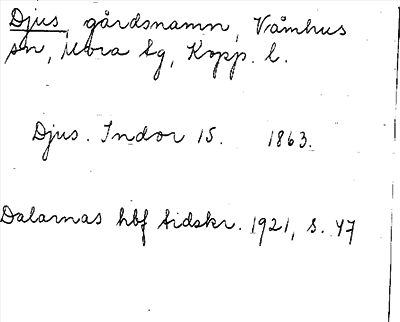 Djus, gårdsnamn, Våmhus
sn, Mora tg, Kopp. l.
Djus. Indor 15. 1863.
Dalarnas hbf tidskr. 1921, s. 47